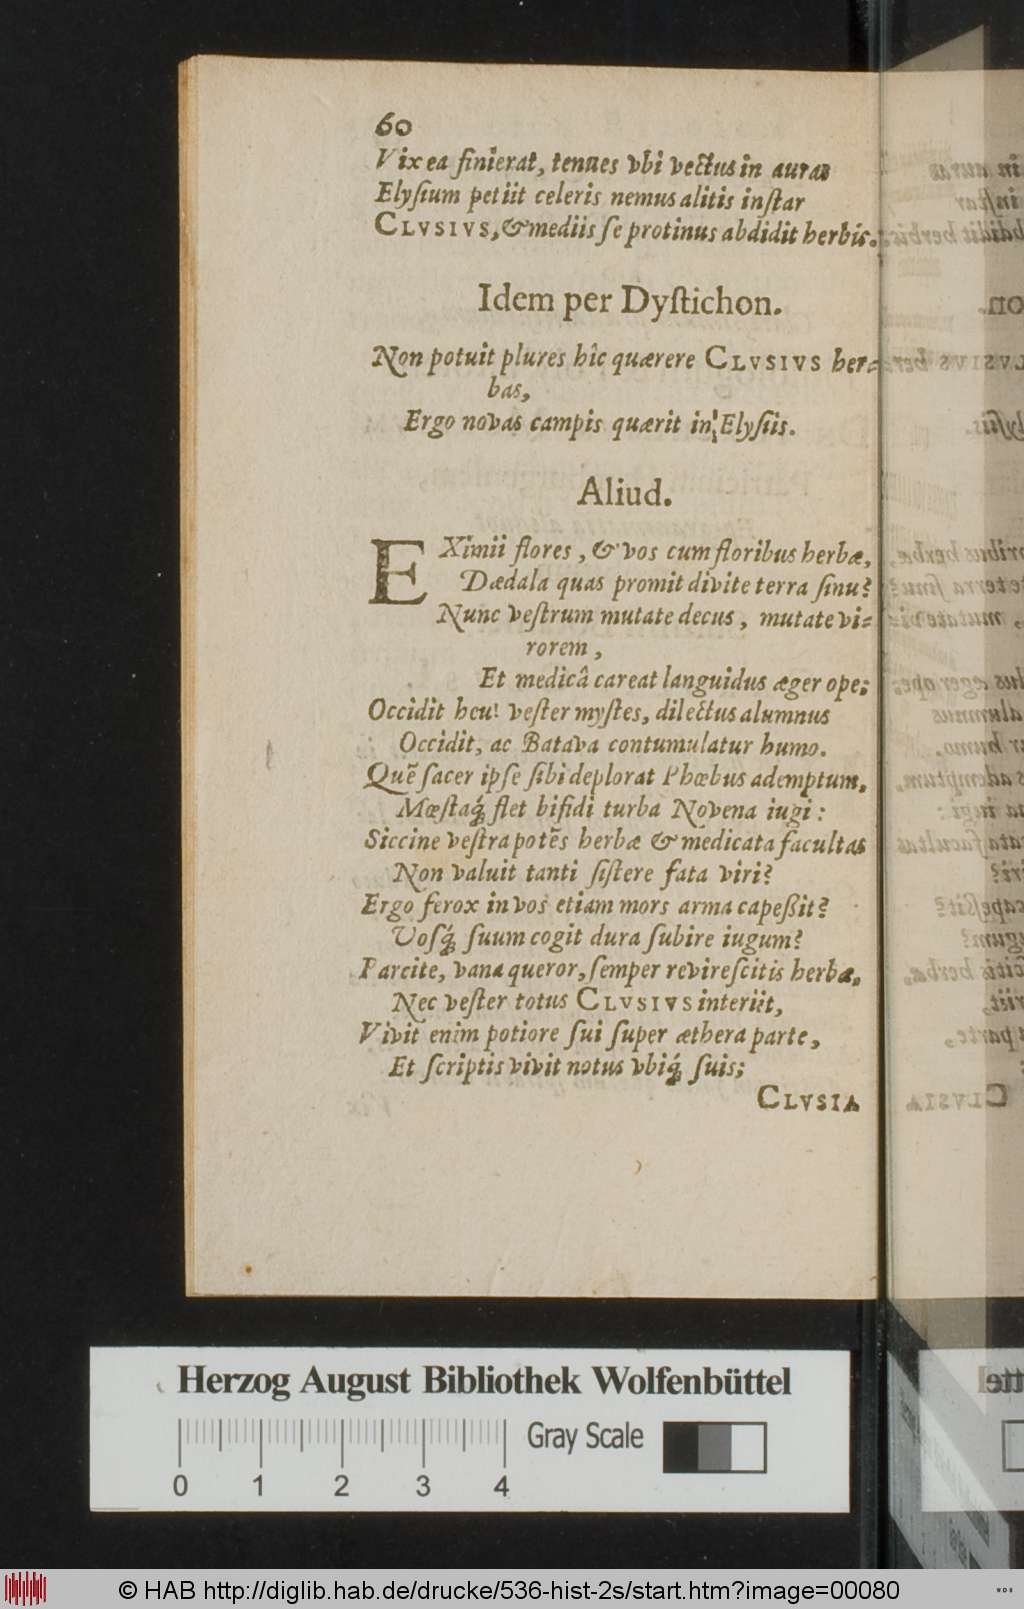 60
Vix ea finierat, tenues vbi vectus in auras
Elyſium petiit celeris nemus alitis inſtar
CLVSIVS, & mediis ſe protinus abdidit herbis.
Idem per Dyſtichon.
Non potuit plures hîc quærere CLVSIVS her-
bas,
Ergo novas campis quærit in Elyſiis.
Aliud.
EXimii flores, & vos cum floribus herbæ,
Dædala quas promit divite terra ſinu?
Nunc veſtrum mutate decus, mutate vi-
rorem,
Et medicâ careat languidus æger ope;
Occidit heu! veſter myſtes, dilectus alumnus
Occidit, ac Batava contumulatur humo.
Quẽ ſacer ipſe ſibi deplorat Phœbus ademptum,
Mœſtaq́; flet bifidi turba Novena iugi:
Siccine veſtra potẽs herbæ & medicata facultas
Non valuit tanti ſiſtere fata viri?
Ergo ferox in vos etiam mors arma capeßit?
Voſq́; ſuum cogit dura ſubire iugum?
Parcite, vana queror, ſemper revireſcitis herbæ,
Nec veſter totus CLVSIVS interiit,
Vivit enim potiore ſui ſuper æthera parte,
Et ſcriptis vivit notus vbiq́; ſuis;
CLVSIA
Herzog August Bibliothek Wolfenbüttel
Gray Scale
0 1 2 3 4
© HAB http://diglib.hab.de/drucke/536-hist-2s/start.htm?image=00080